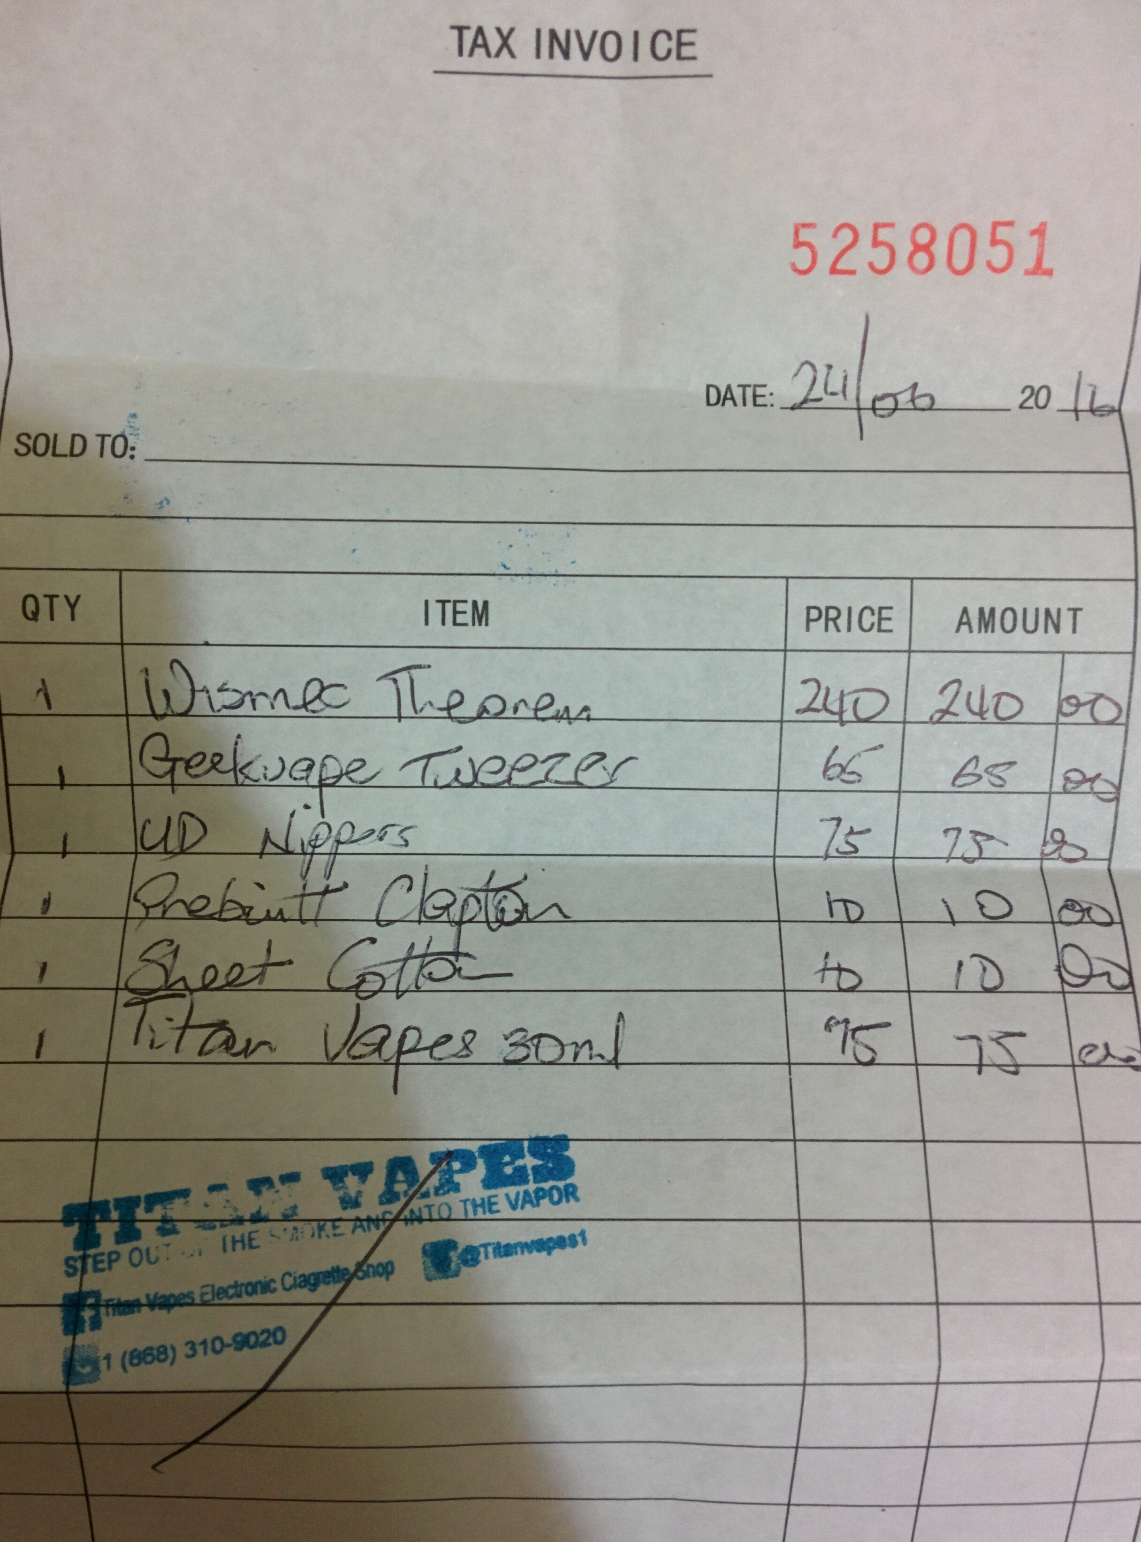 TAX INVOICE
5258051
DATE: 24/06 20 16
SOLD TO:
QTY ITEM PRICE AMOUNT
1 Wismec Theorem 240 240 00
1 Geekvape Tweezer 65 65 00
1 UD Nippers 75 75 00
1 Prebuilt Clapton 10 10 00
1 Sheet Cotton 10 10 00
1 Titan Vapes 30ml 75 75 00
TITAN VAPES
STEP OUT OF THE SMOKE AND INTO THE VAPOR
Titan Vapes Electronic Ciagrette Shop @Titanvapes1
1 (868) 310-9020